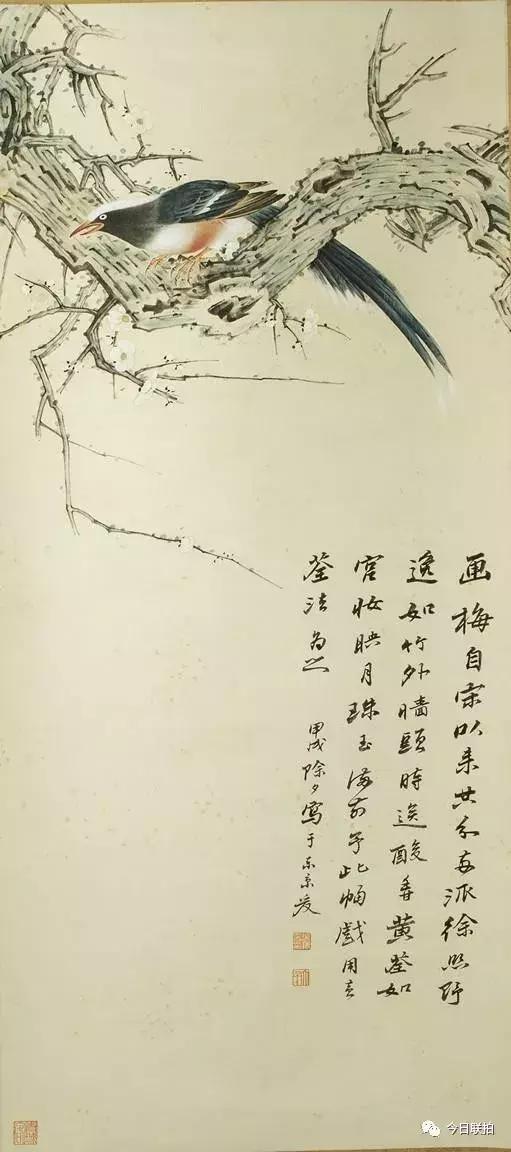 画梅自宋以来共分两派徐熙野
逸如竹外墻頭時送酸香黄荃如
宫妝映月珠玉满前予此幅戲用黄
荃法为之
甲戌除夕寫于东京爰
今日联拍